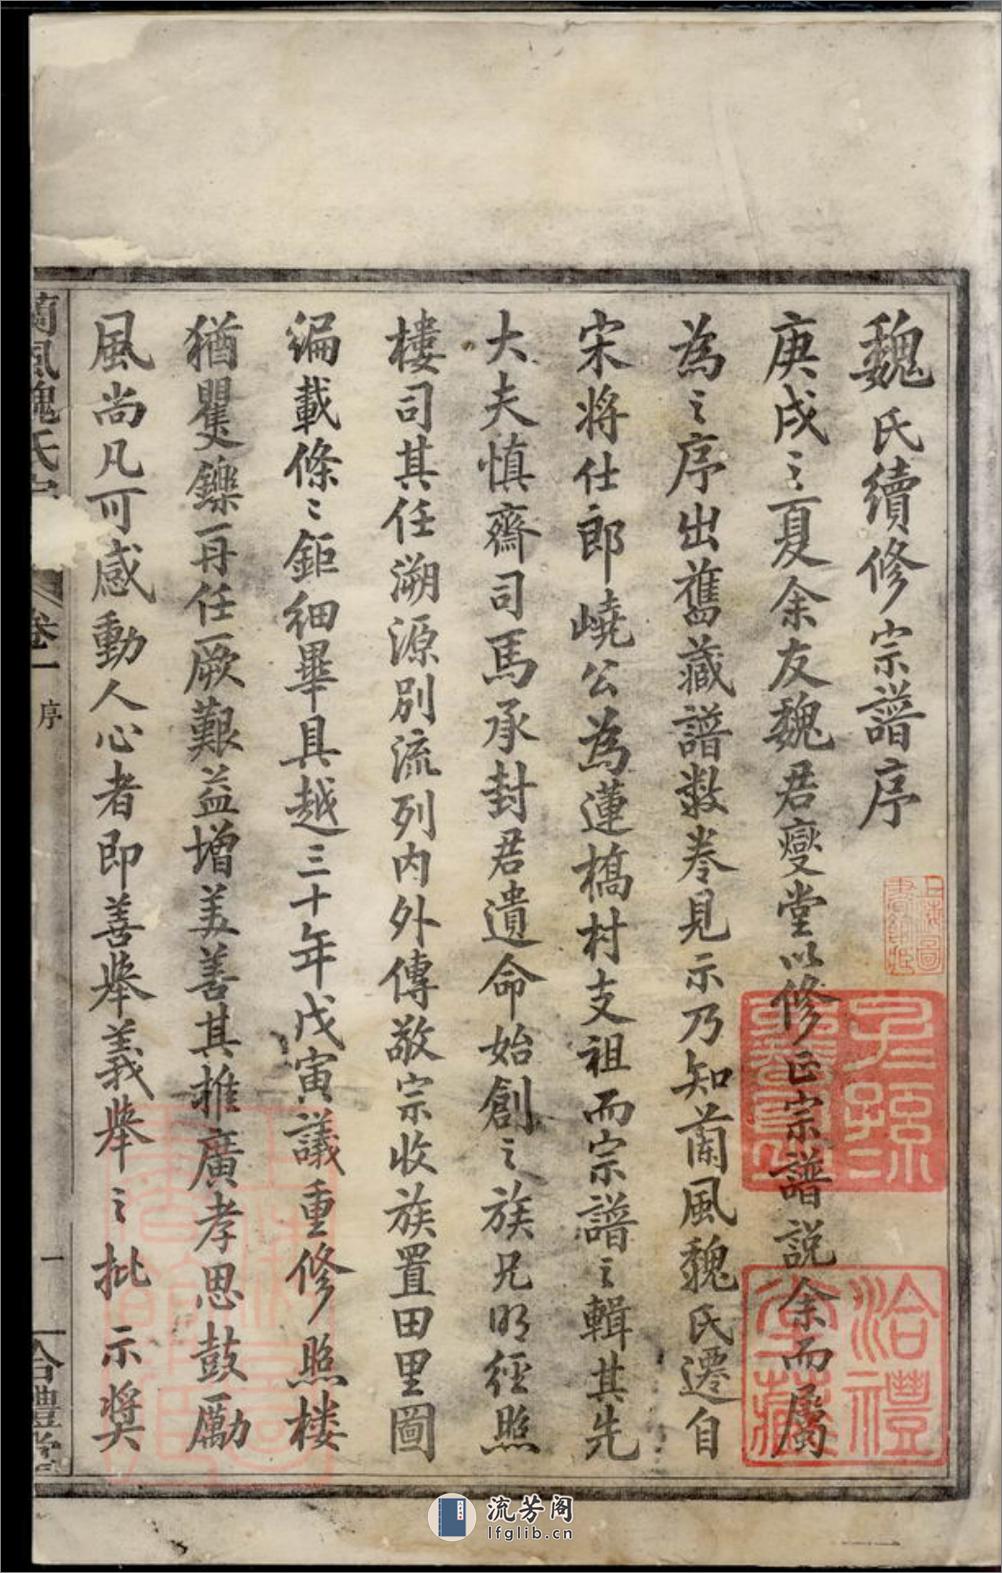 魏氏續修宗譜序
庚戌之夏余友魏君燮堂以修正宗譜說余而屬
為之序出舊藏譜数卷見示乃知蘭風魏氏遷自
宋将仕郎嶢公為蓮橋村支祖而宗譜之輯其先
大夫慎齋司馬承封君遺命始創之族兄明經照
樓司其任溯源別流列內外傳敬宗收族置田里圖
編載條〻鉅細畢具越三十年戊寅議重修照楼
猶矍鑠再任厥艱益增美善其推廣孝思鼓勵
風尚凡可感動人心者即善舉義舉之批示獎
蘭風魏氏宗
卷一
序
一
合禮堂
子孫
洽禮堂藏
上海圖書館藏
流芳阁
lfglib.cn